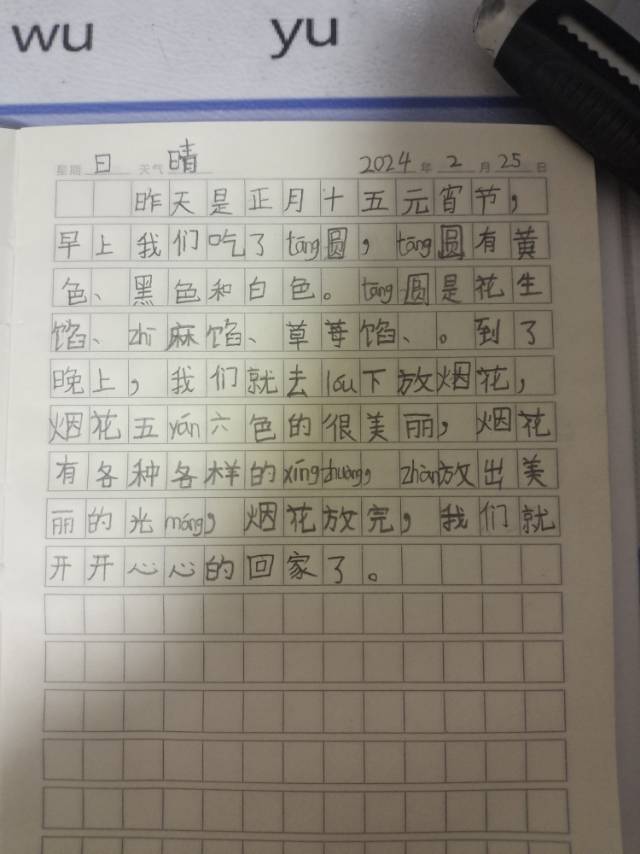 wu yu
星期 日 天气 晴 2024 年 2 月 25 日
昨天是正月十五元宵节，
早上我们吃了tāng圆，tāng圆有黄
色、黑色和白色。tāng圆是花生
馅、zhī麻馅、草莓馅、。到了
晚上，我们就去lóu下放烟花，
烟花五yán六色的很美丽，烟花
有各种各样的xíngzhuang，zhàn放出美
丽的光máng，烟花放完，我们就
开开心心的回家了。